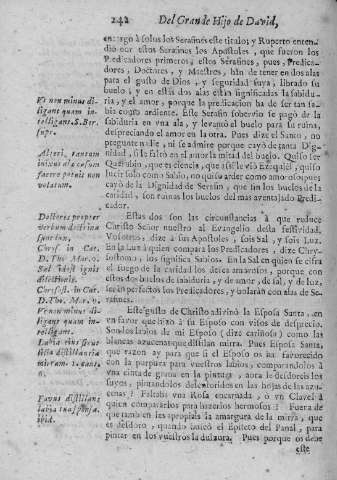 242 Del Grande Hijo de David,
encargó à solos los Serafines este titulo; y Ruperto enten-
diò por estos Serafines los Apostoles, que fueron los
Predicadores primeros; estos Serafines, pues, Predica-
dores, Doctores, y Maestros, hàn de tener en dos alas
para gusto de Dios, y seguridad suya, librado su
buelo; y en estas dos alas estàn significadas la sabidu-
ria, y el amor, porque la predicacion ha de ser tan sa-
bia como ardiente. Este Serafin sobervio se pagò de la
sabiduria en vna ala, y levantò el buelo para su ruina,
despreciando el amor en la otra. Pues dize el Santo, no
pregunte nadie, ni se admire porque cayò de tanta Dig-
nidad, si le faltò en el amor la mitad del buelo. Quiso ser
Querubin, que es ciencia, que assi le viò Ezequiel, quiso
lucir solo como Sabio, no quiso arder como amoroso; pues
cayò de la Dignidad de Serafin, que sin los buelos de la
caridad, son ruinas los del mas aventajado Predi-
cador.
Vt non minus di-
ligant quam in-
telligant. S. Ber.
supr.
Alteri, tantum
inixus ala casum
facere potuit non
volatum.
Estas dos son las circunstancias à que reduce
Christo Señor nuestro al Evangelio desta festividad.
Vosotros, dize à sus Apostoles, sois Sal, y sois Luz.
En la Luz à quien compara los Predicadores, dize Chry-
sostomo, los significa Sabios. En la Sal en quien se cifra
el fuego de la caridad los desea amorosos, porque con
estos dos buelos de sabiduria, y de amor, de sal, y de luz,
seràn perfectos los Predicadores, y volaràn con alas de Se-
rafines.
Doctores propter
verbum doctrinæ
sunt lux,
Chrys. in Cat.
D. Tho. Mat. 5.
Sal idest ignis
dilectionis.
Chrysost. in Cat.
D. Tho. Mat. 5.
Este gusto de Christo adivinò la Esposa Santa, en
vn favor que hizo à su Esposo con visos de desprecio.
Son los labios de mi Esposo (dize cariñosa) como las
blancas azucenas que distilan mirra. Pues Esposa Santa,
que razon ay para que si el Esposo os ha favorecido
con la purpura para vuestros labios, comparandolos à
vna cinta de grana en la pintura, aora le desdoreis los
suyos, pintandolos descoloridos en las hojas de las azu-
cenas? Faltaba vna Rosa encarnada, ò vn Clavel à
quien compararlos para hazerlos hermosos? Fuera de
que tambien les apropiais la amargura de la mirra, que
es desdoro, quando buscò el Epiteto del Panal, para
pintar en los vuestros la dulzura. Pues porque os debe
Vt non minus di-
ligant quam in-
telligant.
Labia eius sicut
lilia distillantia
mirram.
Favus distillans
labia tua sponsa.
ibid.
este